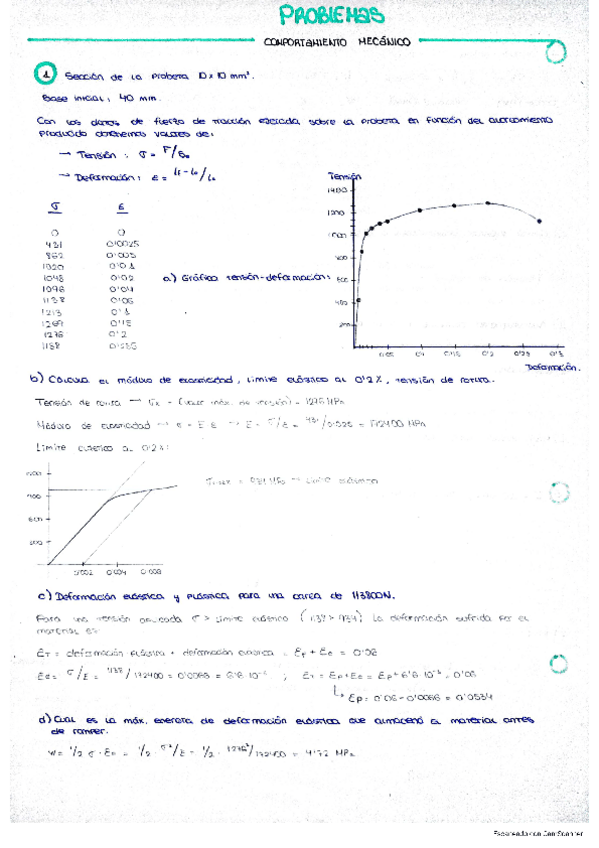 PROBLEMAS
COMPORTAMIENTO MECÁNICO
1 Sección de la probeta 10x10 mm².
Base inicial: 40 mm.
Con los datos de fuerza de tracción ejercida sobre la probeta en función del alargamiento
producido obtenemos valores de:
→ Tensión: σ = F/S₀
→ Deformación: ε = lf-l₀/l₀
σ ε
0 0
431 0'0025
862 0'005
1020 0'01
1048 0'02
1096 0'04
1138 0'06
1213 0'1
1269 0'15
1276 0'2
1158 0'285
a) Gráfica tensión-deformación:
Tensión
1400
1200
1000
800
600
400
200
0'05 0'1 0'15 0'2 0'25 0'3
Deformación.
b) Calcula el módulo de elasticidad, límite elástico al 0'2%, tensión de rotura.
Tensión de rotura → = (valor máx. de tensión) = 1276 MPa
Módulo de elasticidad → σ = E·ε → E = σ/ε = 431/0'0025 = 172400 MPa
Límite elástico al 0'2%:
0'002 0'004 0'008
→ límite elástico
c) Deformación elástica y plástica para una carga de 113800N.
Para una tensión aplicada σ > límite elástico la deformación sufrida por el
material es:
ET = deformación plástica + deformación elástica = Ep + Ee = 0'06
Ee = σ/E = 1138/172400 = 0'0066 = 6'6·10⁻³ ; ET = Ep+Ee = Ep+6'6·10⁻³ = 0'06
↳ Ep = 0'06-0'0066 = 0'0534
d) Cuál es la máx. energía de deformación elástica que almacenó el material antes
de romper.
W = 1/2 σ·Ee = 1/2·σ²/E = 1/2·1276²/172400 = 4'72 MPa
Escaneado con CamScanner